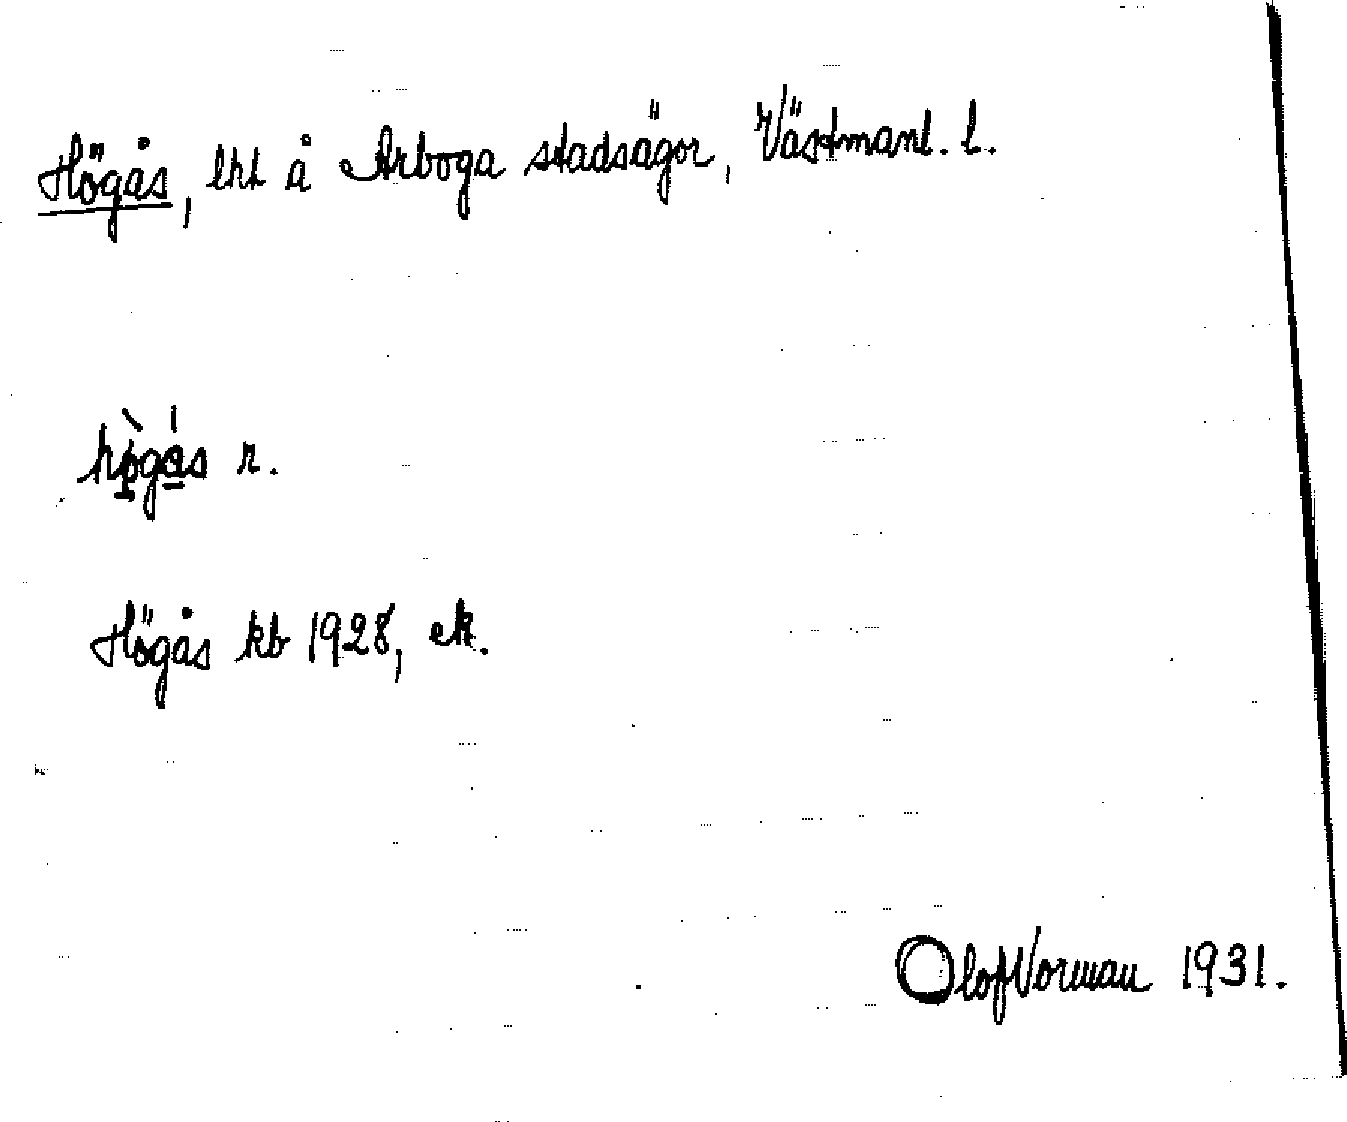 Högås, lht å Arboga stadsägor, Västmanl. l.
hògás r.
Högås kb 1928, ek.
Olof Vorman 1931.